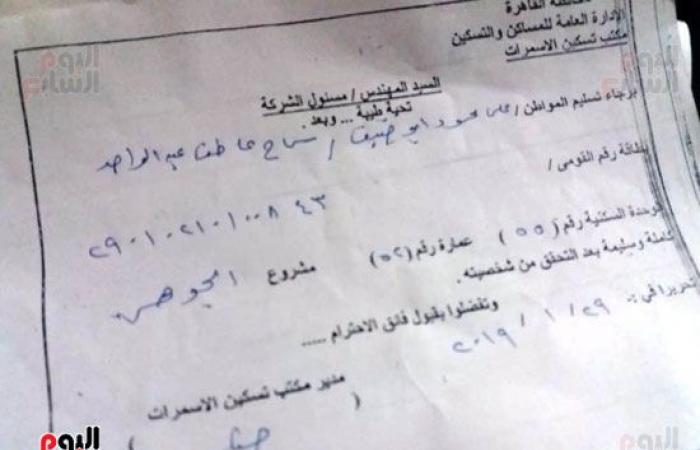 القاهرة
الإدارة العامة للمساكن والتسكين
مكتب تسكين الاسمرات
السيد المهندس / مسئول الشركة
تحية طيبة ... وبعد
برجاء تسليم المواطن / على محمود ابو ضيف / سماح عاطف عبد الواحد
بطاقة رقم القومى /
الوحدة السكنية رقم (٥٥) عمارة رقم (٥٢) مشروع
كاملة وسليمة بعد التحقق من شخصيته.
وتفضلوا بقبول فائق الاحترام .....
تحريرا فى :- ٢٩ / ١ / ٢٠١٩
مدير مكتب تسكين الاسمرات
( )
اليوم السابع
اليوم السابع
اليوم
اليوم